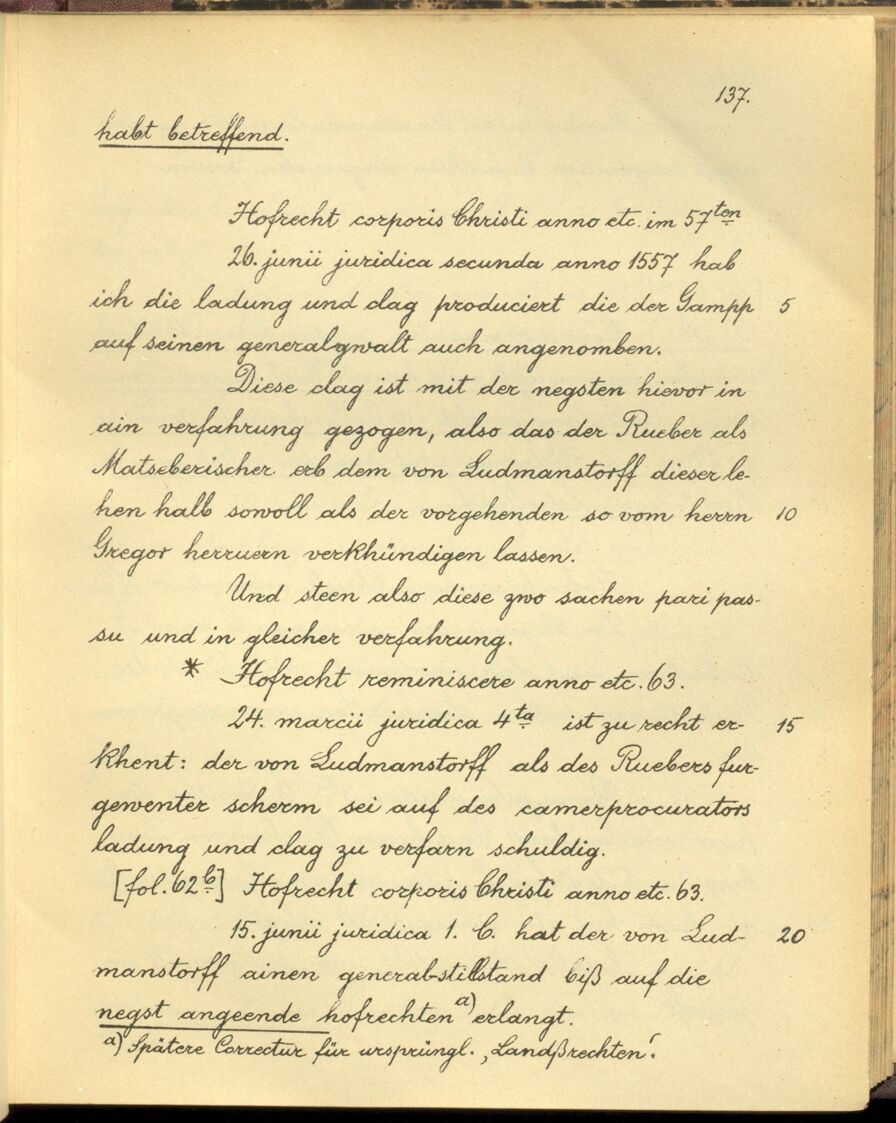 137.
habt betreffend.
Hofrecht corporis Christi anno etc. im 57ten
26. junii juridica secunda anno 1557 hab
ich die ladung und clag produciert die der Gampp 5
auf seinen generalgwalt auch angenomben.
Diese clag ist mit der negsten hievor in
ain verfahrung gezogen, also das der Rueber als
Matseberischer erb dem von Ludmanstorff dieser le-
hen halb sowoll als der vorgehenden so vom herrn 10
Gregor herruern verkhündigen lassen.
Und steen also diese zwo sachen pari pas-
su und in gleicher verfahrung.
* Hofrecht reminiscere anno etc. 63.
24. marcii juridica 4ta ist zu recht er- 15
khent: der von Ludmanstorff als des Ruebers fur-
gewenter scherm sei auf des camerprocurators
ladung und clag zu verfarn schuldig.
[fol. 62b] Hofrecht corporis Christi anno etc. 63.
15. junii juridica 1. C. hat der von Lud- 20
manstorff ainen general-stillstand biß auf die
negst angeende hofrechten a) erlangt.
a) Spätere Correctur für ursprüngl. „Landßrechten“.